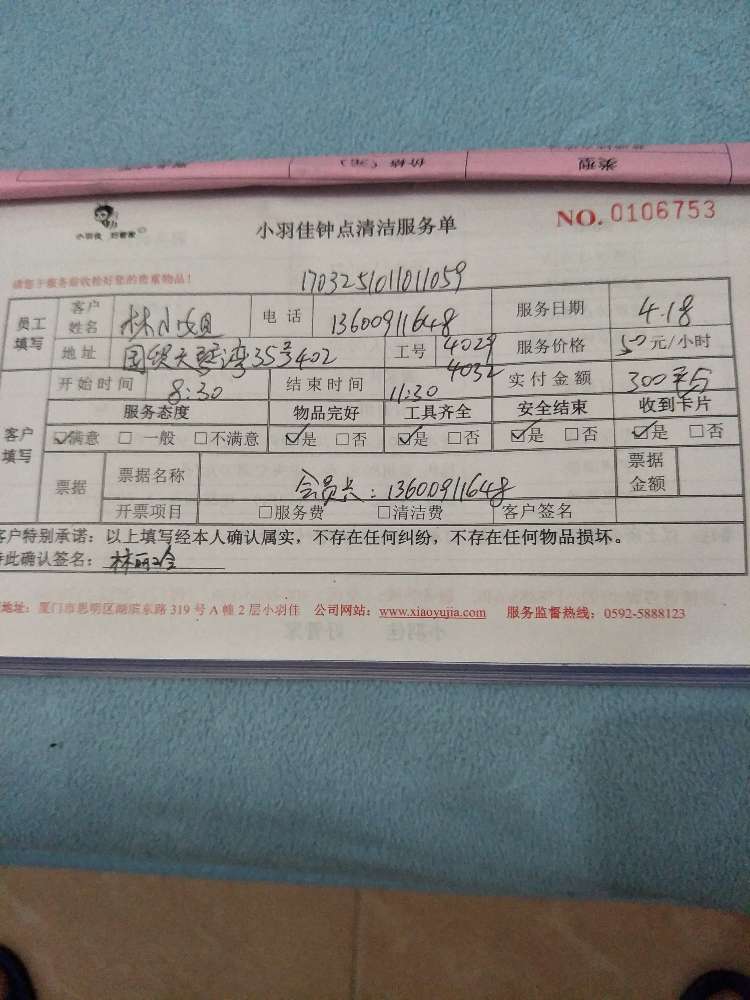 类型 价格（元）
小羽佳 好管家
小羽佳钟点清洁服务单
NO. 0106753
请您于服务前收检好您的贵重物品！
1703251011011059
员工填写 客户姓名 林小姐 电话 13600911648 服务日期 4.18
地址 国贸天琴湾35号402 工号 4029 4032 服务价格 50元/小时
客户填写 开始时间 8:30 结束时间 11:30 实付金额 300
服务态度 物品完好 工具齐全 安全结束 收到卡片
☑满意 □一般 □不满意 ☑是 □否 ☑是 □否 ☑是 □否 ☑是 □否
票据 票据名称 会员卡：13600911648 票据金额
开票项目 □服务费 □清洁费 客户签名
客户特别承诺：以上填写经本人确认属实，不存在任何纠纷，不存在任何物品损坏。
特此确认签名：林丽
地址：厦门市思明区湖滨东路319号A幢2层小羽佳 公司网站：www.xiaoyujia.com 服务监督热线：0592-5888123